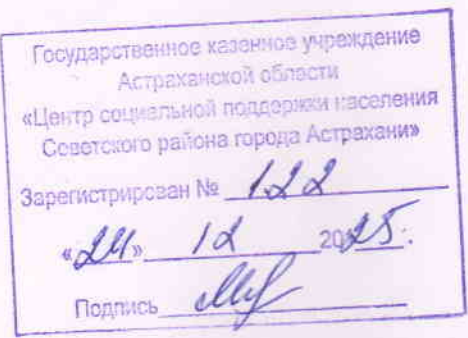 Государственное казенное учреждение
Астраханской области
«Центр социальной поддержки населения
Советского района города Астрахани»
Зарегистрирован № 122
«24» 12 2025.
Подпись